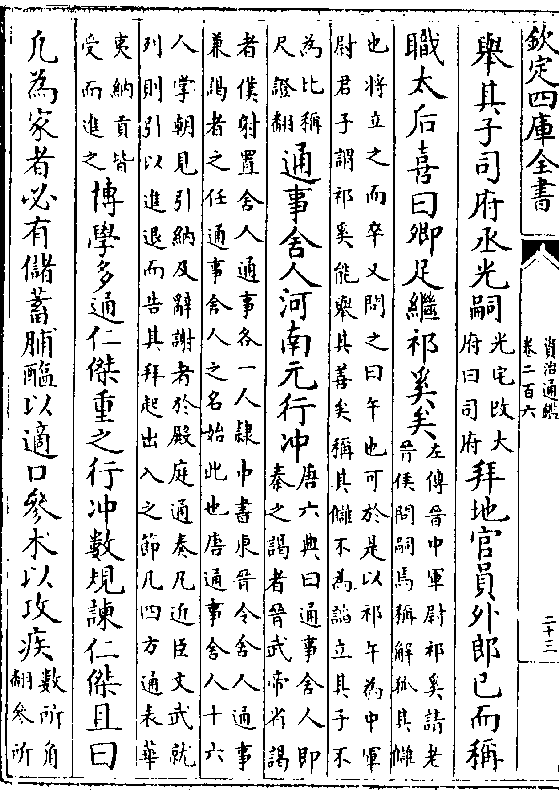 欽定四庫全書
資治通鑑
卷二百六
二十三
舉其子司府丞光嗣光宅改大府曰司府拜地官員外郎已而稱
職太后喜曰卿足繼祁奚矣左傳晉中軍尉祁奚請老晉侯問嗣焉稱解狐其讎
也將立之而卒又問之曰午也可於是以祁午為中軍
尉君子謂祁奚能舉其善矣稱其讎不為諂立其子不
為比稱尺證翻通事舍人河南元行冲唐六典曰通事舍人即秦之謁者晉武帝省謁
者僕射置舍人通事各一人隸中書東晉令舍人通事
兼謁者之任通事舍人之名始此也唐通事舍人十六
人掌朝見引納及辭謝者於殿庭通奏凡近臣文武就
列則引以進退而告其拜起出入之節凡四方通表華
夷納貢皆受而進之博學多通仁傑重之行冲數規諫仁傑且曰
凡為家者必有儲蓄脯醢以適口參朮以攻疾數所角翻參所